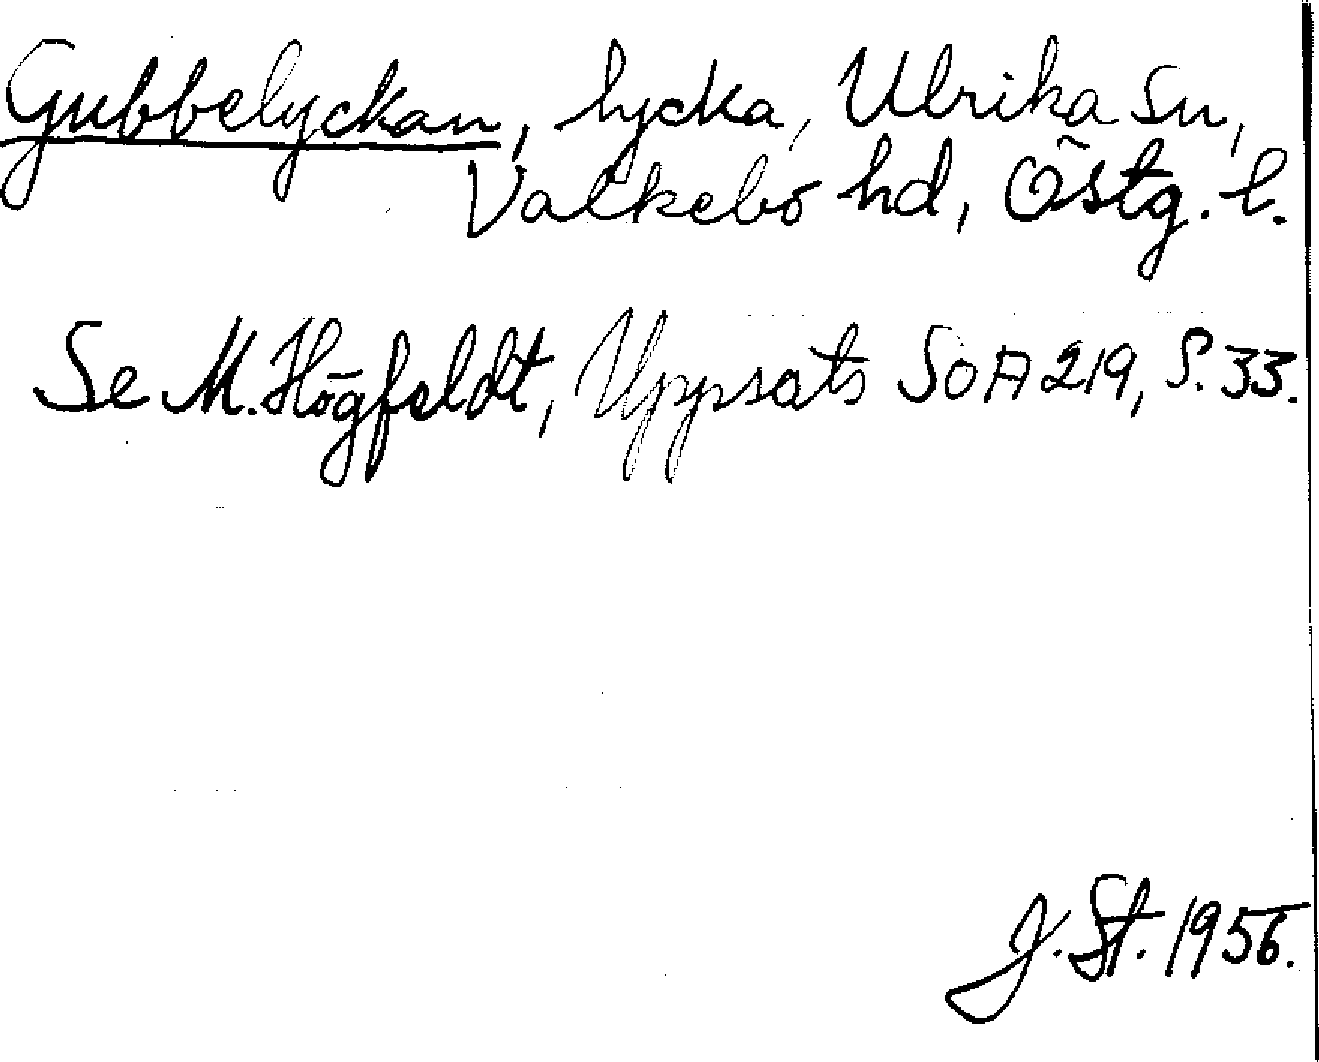 Gubbelyckan, lycka, Ulrika sn,
Valkebo hd, Östg. l.
Se M. Högfeldt, Uppsats SOA 219, s. 33.
J. St. 1956.